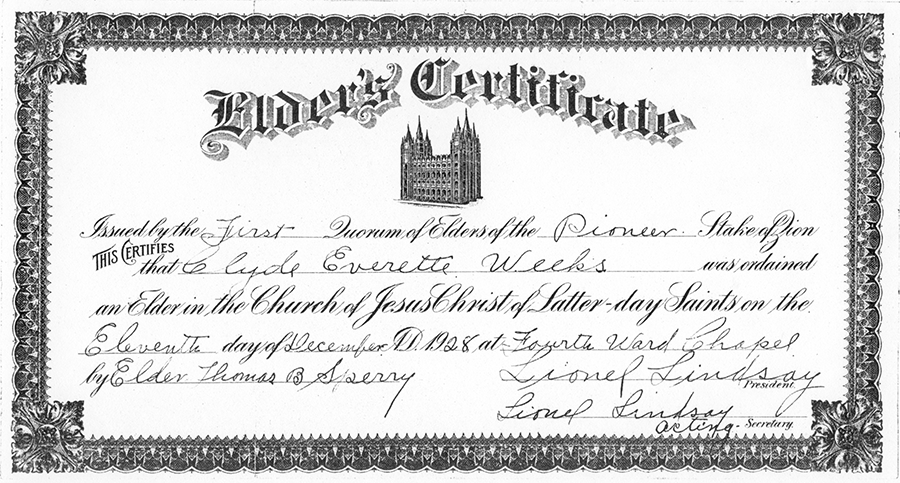 Elder's Certificate
Issued by the First Quorum of Elders of the Pioneer Stake of Zion
THIS CERTIFIES
that Clyde Everette Weeks was ordained
an Elder in the Church of Jesus Christ of Latter-day Saints on the
Eleventh day of December A.D. 1928 at Fourth Ward Chapel
by Elder Thomas B Sperry Lionel Lindsay
President.
Lionel Lindsay
acting - Secretary.